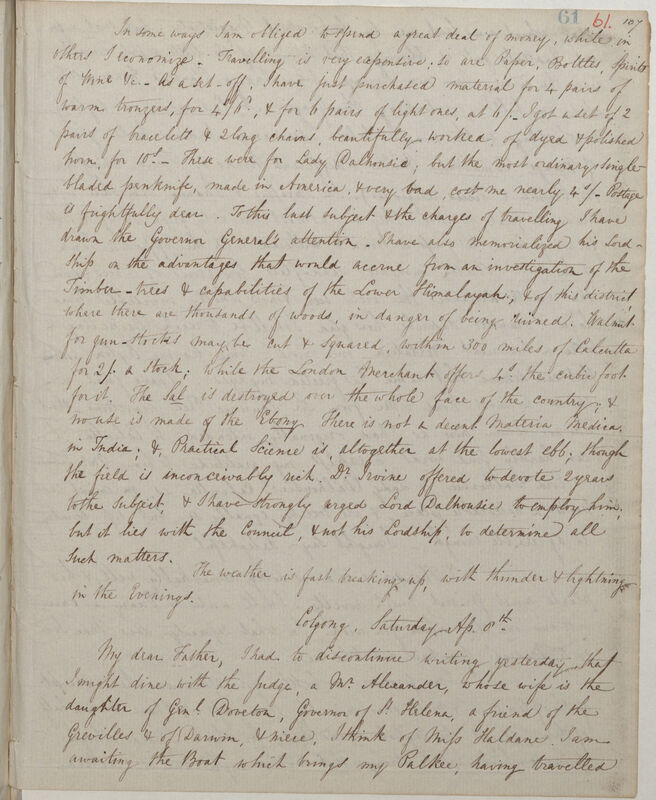 61 61. 107
In some ways I am obliged to spend a great deal of money, while in
others I economize. Travelling is very expensive; so are Paper, Bottles Spirits
of Wine &c. As a set-off, I have just purchased material for 4 pairs of
warm trouzers, for 4/6d, & for 6 pairs of light ones, at 6/- I got a set of 2
pairs of bracelets & 2 long chains, beautifully worked, of dyed & polished
horn for 10s- These were for Lady Dalhousie; but the most ordinary single-
bladed penknife, made in America, & very bad, cost me nearly 4s/- Postage
is frightfully dear. To this last subject & the charges of travelling I have
drawn the Governor General's attention. I have also memorialized his Lord-
ship on the advantages that would accrue from an investigation of the
Timber-trees & capabilities of the Lower Himalayah, & of this district,
where there are thousands of woods, in danger of being ruined. Walnut
for gun-stocks may be cut & squared, within 300 miles of Calcutta
for 2/. a Stock; while the London Merchant offers 4s. the cubic foot
for it. The Sal is destroyed over the whole face of the country; &
no use is made of the Ebony. There is not a decent Materia Medica
in India; & Practical Science is altogether at the lowest ebb; though
the field is inconceivably rich. Dr. Irvine offered to devote 2 years
to the subject, & I have strongly urged Lord Dalhousie to employ him,
but it lies with the Council, & not his Lordship, to determine all
such matters.
The weather is fast breaking up, with thunder & lightning
in the Evenings.
Colgong, Saturday Ap. 8th.
My dear Father, I had to discontinue writing yesterday that
I might dine with the Judge, a Mr Alexander, whose wife is the
daughter of Genl. Doveton, Governor of St. Helena, a friend of the
Grevilles & of Darwin, & niece, I think of Miss Haldane. I am
awaiting the Boat which brings my Palkee, having travelled